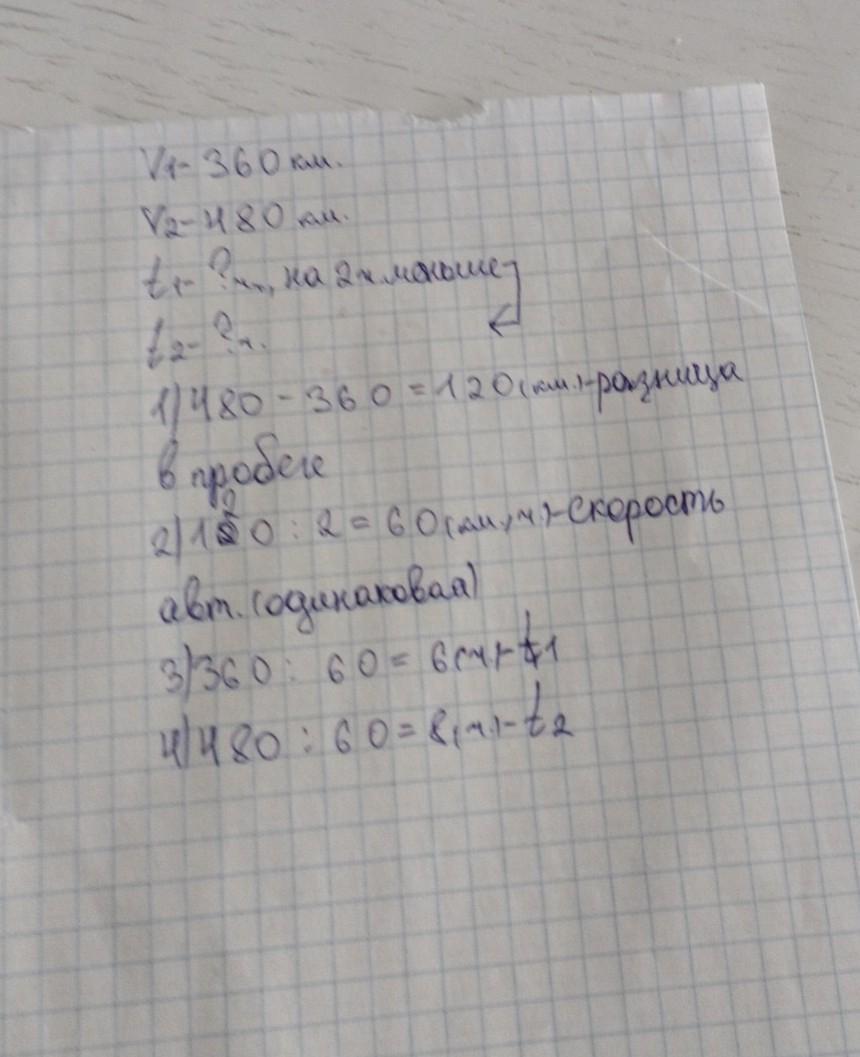 V1- 360 км.
V2- 480 км.
t1- ? ч., на 2ч. меньше
t2- ? ч.
1) 480 - 360 = 120 (км.) - разница
в пробеге
2) 120 : 2 = 60 (км/ч) - скорость
авт. (одинаковая)
3) 360 : 60 = 6 (ч) - t1
4) 480 : 60 = 8 (ч.) - t2